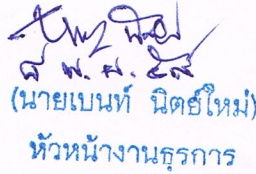 ๘ พ.ย. ๕๘
(นายเบนท์ นิตย์ใหม่)
หัวหน้างานธุรการ